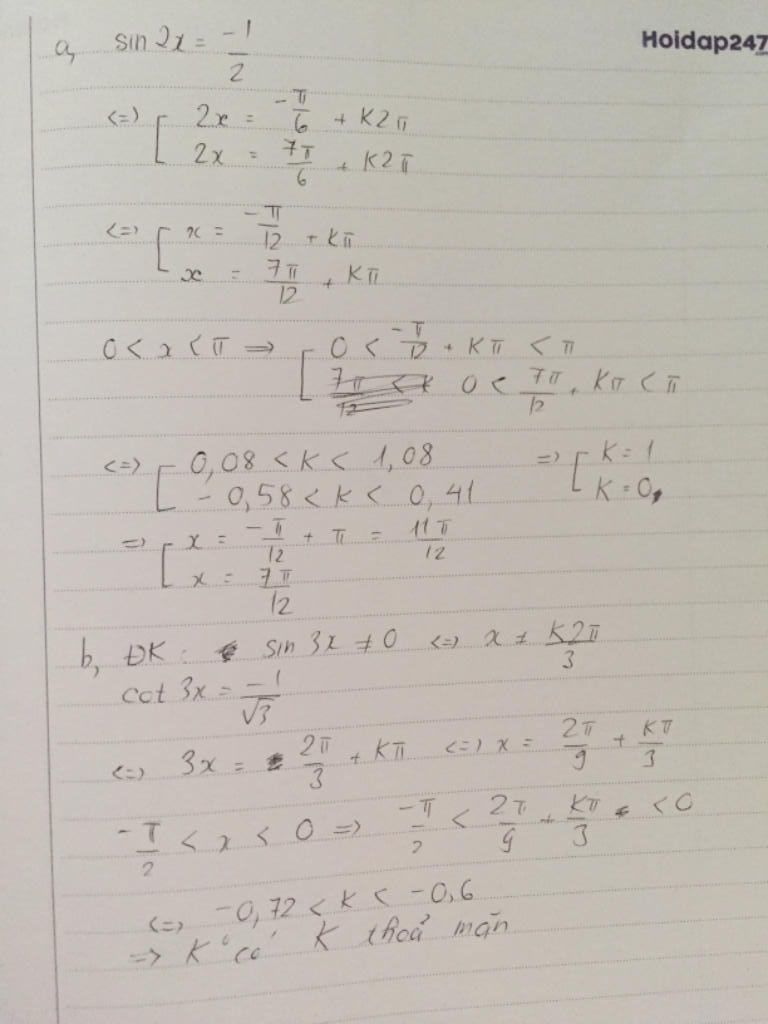 Hoidap247
a, sin 2x = -1/2
<=> [ 2x = -π/6 + K2π
2x = 7π/6 + K2π
<=> [ x = -π/12 + Kπ
x = 7π/12 + Kπ
0 < x < π => [ 0 < -π/12 + Kπ < π
0 < 7π/12 + Kπ < π
<=> [ 0,08 < K < 1,08 => [ K = 1
- 0,58 < K < 0,41 K = 0,
=> [ x = -π/12 + π = 11π/12
x = 7π/12
b, ĐK: sin 3x ≠ 0 <=> x ≠ K2π/3
cot 3x = -1/√3
<=> 3x = 2π/3 + Kπ <=> x = 2π/9 + Kπ/3
-π/2 < x < 0 => -π/2 < 2π/9 + Kπ/3 < 0
<=> -0,72 < K < -0,6
=> K° có K thoả mãn